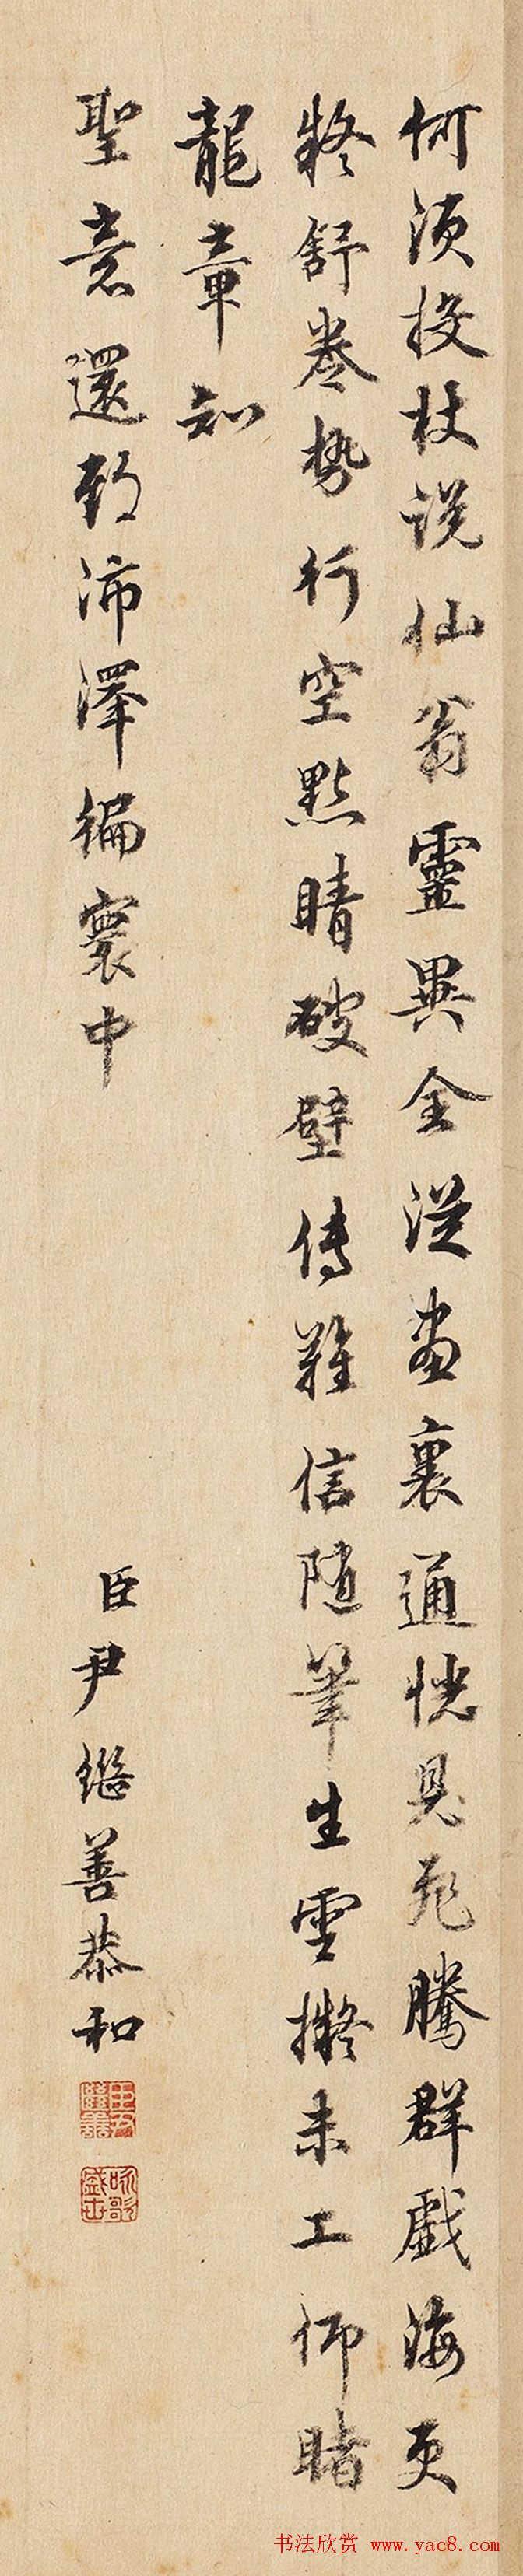 何須投杖說仙翁靈異全從畫裏通恍見飛騰群戲海更
疑舒卷勢行空點睛破壁傳難信隨筆生雲擬未工仰睹
龍章知
聖意還期沛澤徧寰中
臣尹繼善恭和
臣尹繼善
詠歌盛世
书法欣赏 www.yac8.com